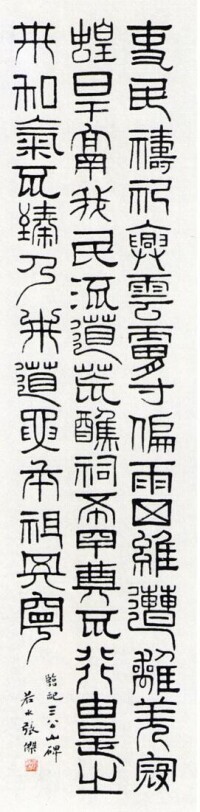 吏民禱祀興雲膚寸偏雨四維遭離羌寇
蝗旱鬲我民流道荒醮祠希罕奠不行由是之
來和氣不臻乃來道要本祖其原
臨祀三公山碑
若水張傑